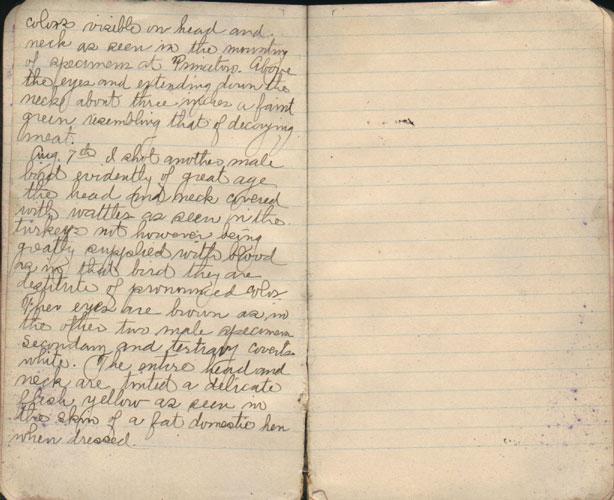 colors visible on head and
neck as seen in the mounting
of specimens at Princeton. Above
the eyes and extending down the
neck about three inches a faint
green resembling that of decaying
meat.
Aug. 7th I shot another male
bird evidently of great age
the head and neck covered
with wattles as seen in the
turkey not however being
greatly supplied with blood
as in that bird they are
destitute of pronounced color
eyes are brown as in
the other two male specimens
secondary and tertiary coverts
white. (The entire head and
neck are tinted a delicate
flesh yellow as seen in
the skin of a fat domestic hen
when dressed.